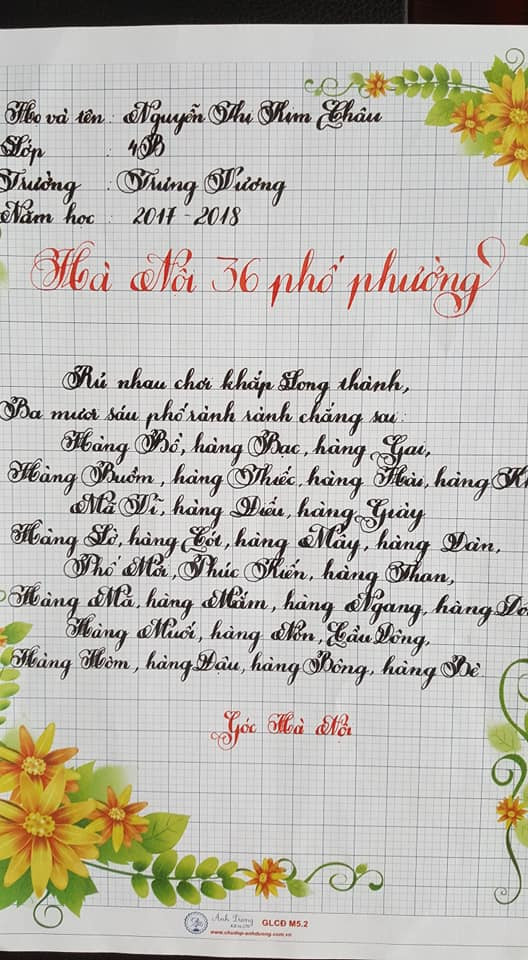 Họ và tên : Nguyễn Thị Kim Châu
Lớp : 4B
Trường : Trưng Vương
Năm học : 2017 - 2018
Hà Nội 36 phố phường
Rủ nhau chơi khắp Long thành,
Ba mươi sáu phố rành rành chẳng sai:
Hàng Bồ, hàng Bạc, hàng Gai,
Hàng Buồm, hàng Thiếc, hàng Hài, hàng Kh
Mã Vĩ, hàng Điếu, hàng Giày
Hàng Lờ, hàng Cót, hàng Mây, hàng Đàn,
Phố Mới, Phúc Kiến, hàng Than,
Hàng Mã, hàng Mắm, hàng Ngang, hàng Đồ
Hàng Muối, hàng Nón, Cầu Đông,
Hàng Hòm, hàng Đậu, hàng Bông, hàng Bè
Góc Hà Nội
Ánh Dương
GLCĐ M5.2
www.chudep-anhduong.com.vn